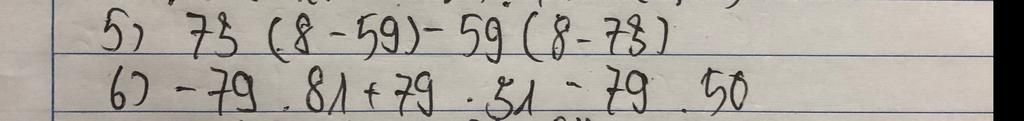 5) 73 (8 - 59) - 59 (8 - 73)
6) - 79 . 81 + 79 . 51 - 79 . 50